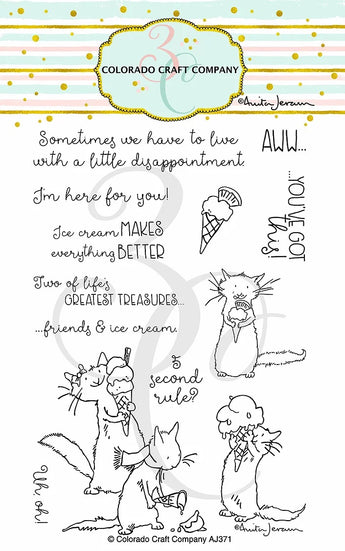 COLORADO CRAFT COMPANY
©Anita Jeram
Sometimes we have to live
with a little disappointment.
AWW...
I'm here for you!
...YOU'VE GOT
this!
Ice cream MAKES
everything BETTER
Two of life's
GREATEST TREASURES...
...friends & ice cream.
5
second
rule?
Uh oh!
©Anita Jeram
© Colorado Craft Company AJ371